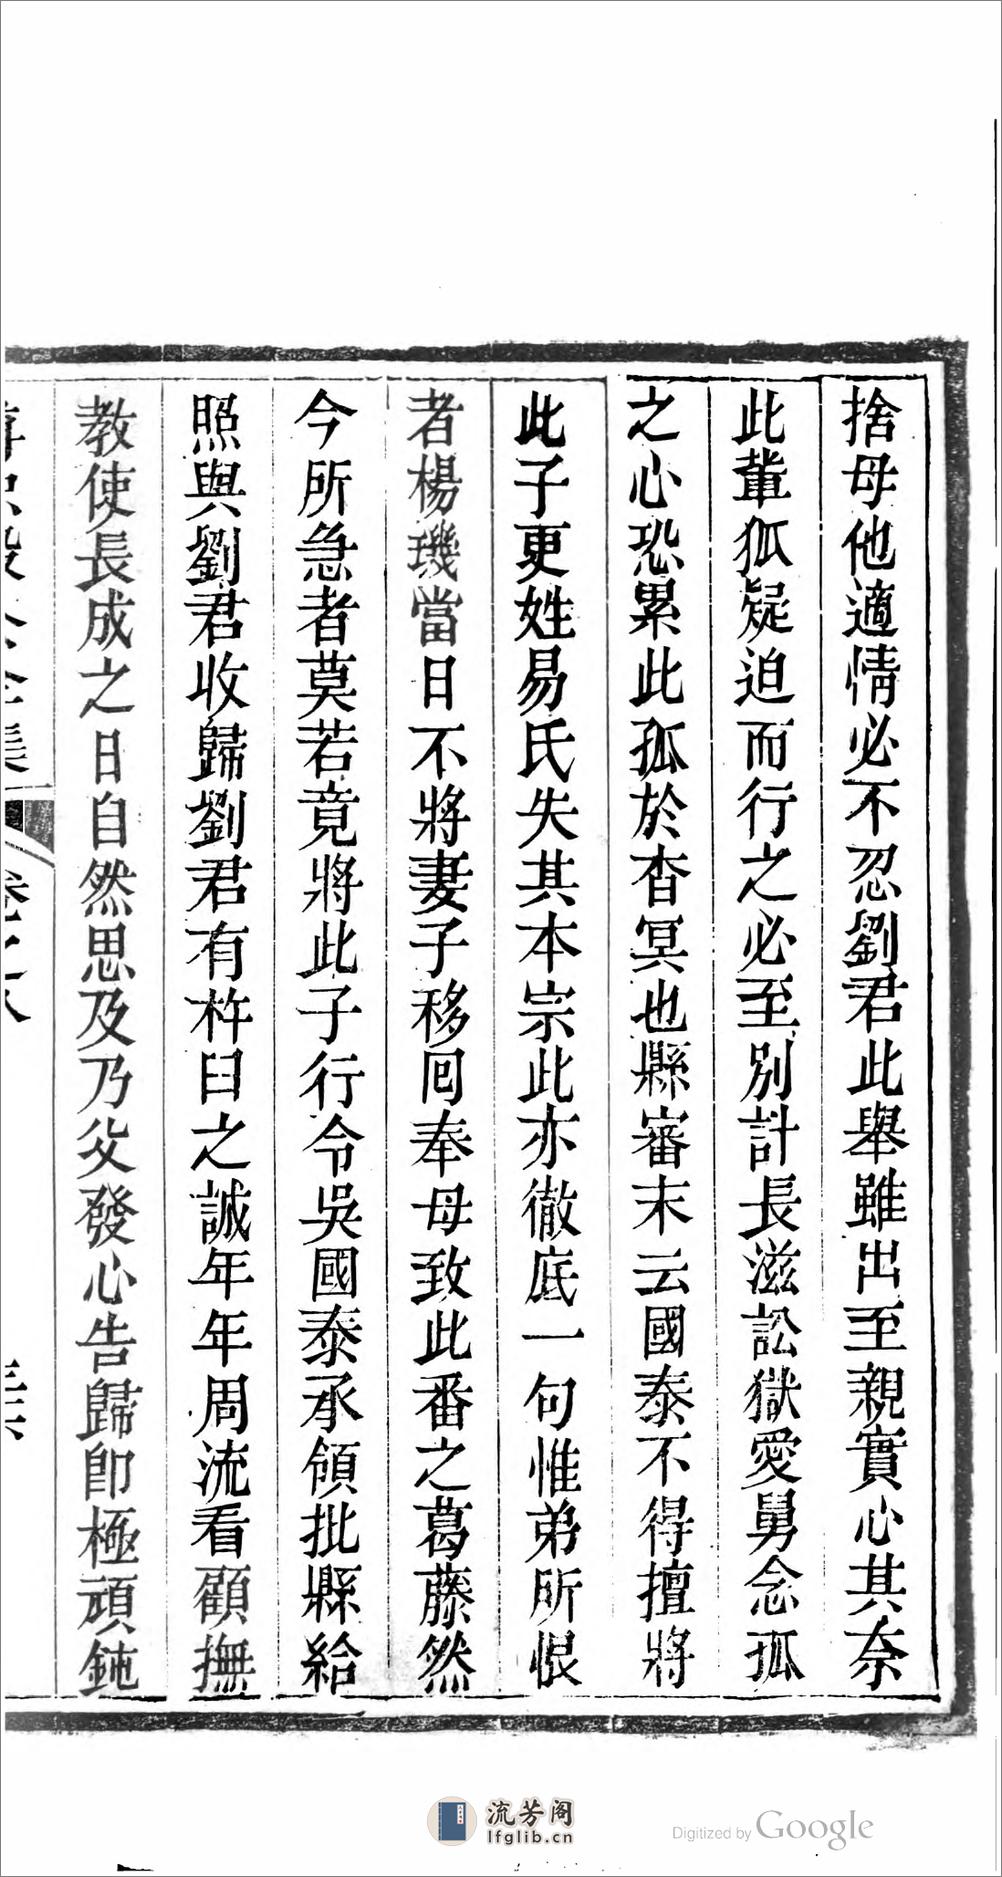 捨母他適情必不忍劉君此舉雖出至親實心其奈
此輩狐疑迫而行之必至別計長滋訟獄愛舅念孤
之心恐累此孤於杳冥也縣審末云國泰不得擅將
此子更姓易氏失其本宗此亦徹底一句惟弟所恨
者楊璣當日不將妻子移囘奉母致此番之葛藤然
今所急者莫若竟將此子行令吳國泰承領批縣給
照與劉君收歸劉君有杵臼之誠年年周流看顧撫
教使長成之日自然思及乃父發心告歸卽極頑鈍
卷之八
流芳阁
lfglib.cn
Digitized by Google